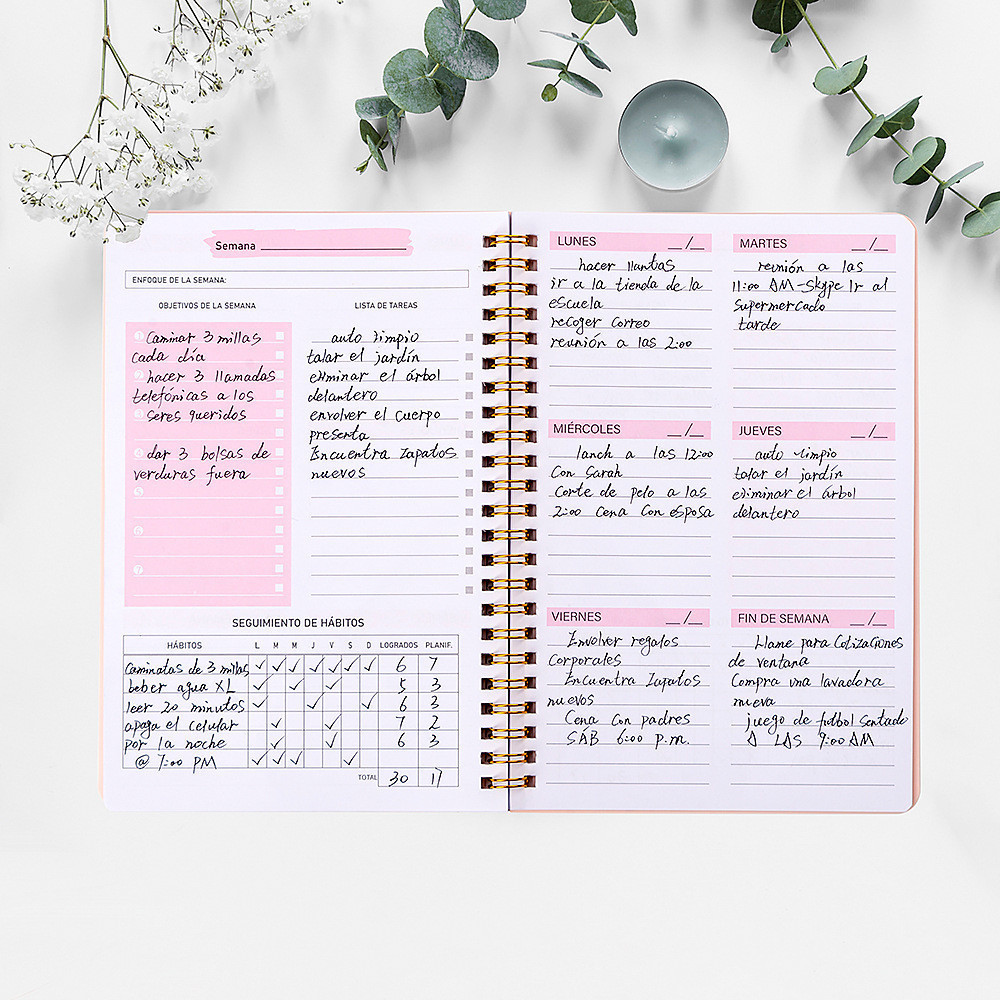 Semana
ENFOQUE DE LA SEMANA:
OBJETIVOS DE LA SEMANA
1 Caminar 3 millas
cada día
2 hacer 3 llamadas
telefónicas a los
3 seres queridos
4 dar 3 bolsas de
verduras fuera
5
6
7
LISTA DE TAREAS
auto limpio
talar el jardín
eliminar el árbol
delantero
envolver el cuerpo
presenta
Encuentra zapatos
nuevos
SEGUIMIENTO DE HÁBITOS
HÁBITOS L M M J V S D LOGRADOS PLANIF.
Caminatas de 3 millas ✓ ✓ ✓ ✓ ✓ ✓ ✓ 6 7
beber agua XL ✓ ✓ ✓ 5 3
leer 20 minutos ✓ ✓ ✓ 6 3
apaga el celular ✓ ✓ 7 2
por la noche ✓ ✓ 6 3
@ 7:00 PM ✓ ✓ ✓ ✓
TOTAL 30 17
LUNES __/__
hacer llantas
ir a la tienda de la
escuela
recoger correo
reunión a las 2:00
MARTES __/__
reunión a las
11:00 AM-Skype Ir al
supermercado
tarde
MIÉRCOLES __/__
lanch a las 12:00
Con Sarah
Corte de pelo a las
2:00 Cena Con esposa
JUEVES __/__
auto limpio
talar el jardín
eliminar el árbol
delantero
VIERNES __/__
Envolver regalos
corporales
Encuentra zapatos
nuevos
Cena Con padres
SÁB 6:00 p.m.
FIN DE SEMANA __/__
Llame para Cotizaciones
de ventana
Compra una lavadora
nueva
juego de futbol Sentado
A LAS 9:00 AM